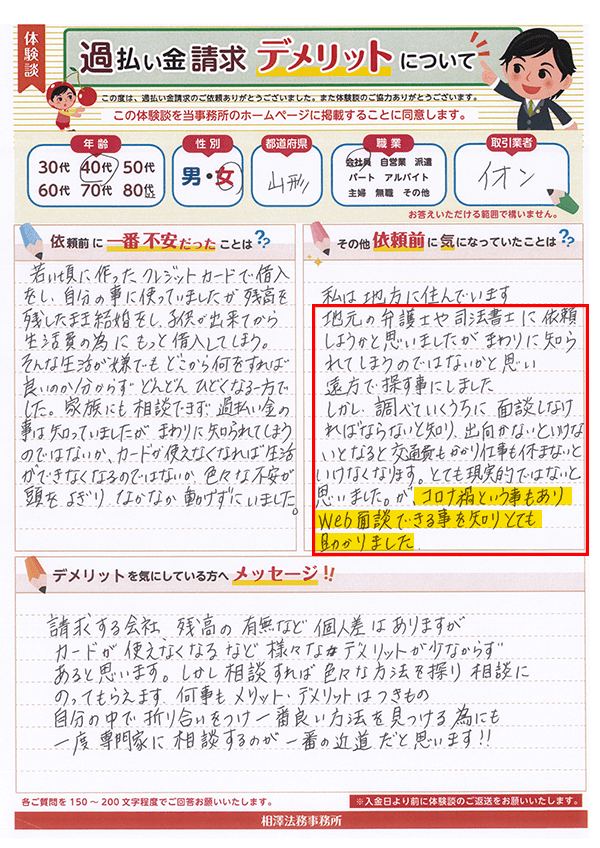 体験談
過払い金請求 デメリットについて
この度は、過払い金請求のご依頼ありがとうございました。また体験談のご協力ありがとうございます。
この体験談を当事務所のホームページに掲載することに同意します。
年齢
30代 40代 50代
60代 70代 80代以上
性別
男・女
都道府県
山形
職業
会社員 自営業 派遣
パート アルバイト
主婦 無職 その他
取引業者
イオン
お答えいただける範囲で構いません。
依頼前に一番不安だったことは??
若い頃に作ったクレジットカードで借入
をし、自分の事に使っていましたが残高を
残したまま結婚をし、子供が出来てから
生活費の為にもっと借入してしまう。
そんな生活が嫌でもどこから何をすれば
良いのか分からずどんどんひどくなる一方で
した。家族にも相談できず過払い金の
事は知っていましたがまわりに知られてしまう
のではないか、カードが使えなくなれば生活
ができなくなるのではないか色々な不安が
頭をよぎり、なかなか動けずにいました。
その他依頼前に気になっていたことは??
私は地方に住んでいます
地元の弁護士や司法書士に依頼
しようかと思いましたがまわりに知ら
れてしまうのではないかと思い
遠方で探す事にしました
しかし、調べていくうちに面談しなけ
ればならないと知り、出向かないといけな
いとなると交通費もかかり仕事も休まないと
いけなくなります。とても現実的ではないと
思いました。が、コロナ禍という事もあり
Web面談できる事を知りとても
助かりました
デメリットを気にしている方へメッセージ!!
請求する会社、残高の有無など個人差はありますが
カードが使えなくなるなど様々なデメリットが少なからず
あると思います。しかし相談すれば色々な方法を探り相談に
のってもらえます 何事もメリット・デメリットはつきもの
自分の中で折り合いをつけ一番良い方法を見つける為にも
一度専門家に相談するのが一番の近道だと思います!!
各ご質問を150～200文字程度でご回答お願いいたします。
※入金日より前に体験談のご返送をお願いいたします。
相澤法務事務所